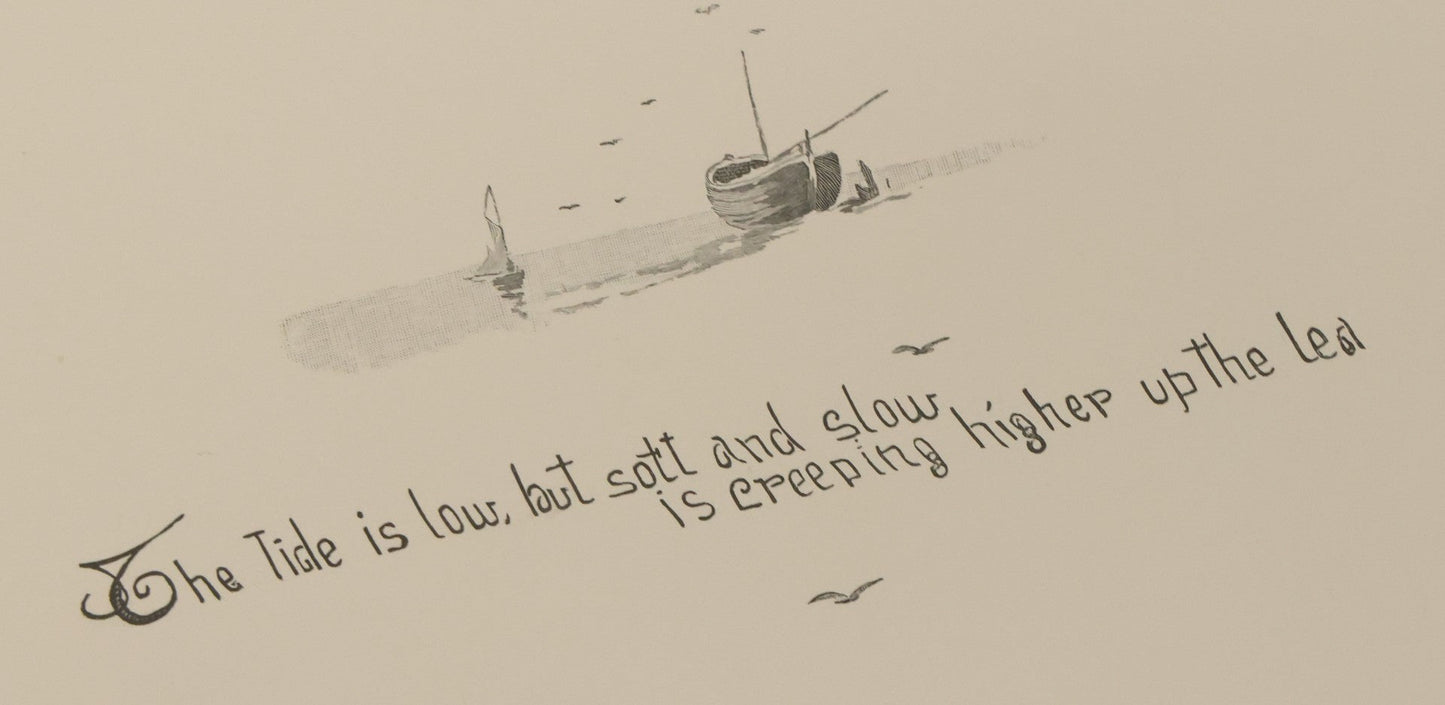 The Tide is low, but soft and slow
is creeping higher up the lea